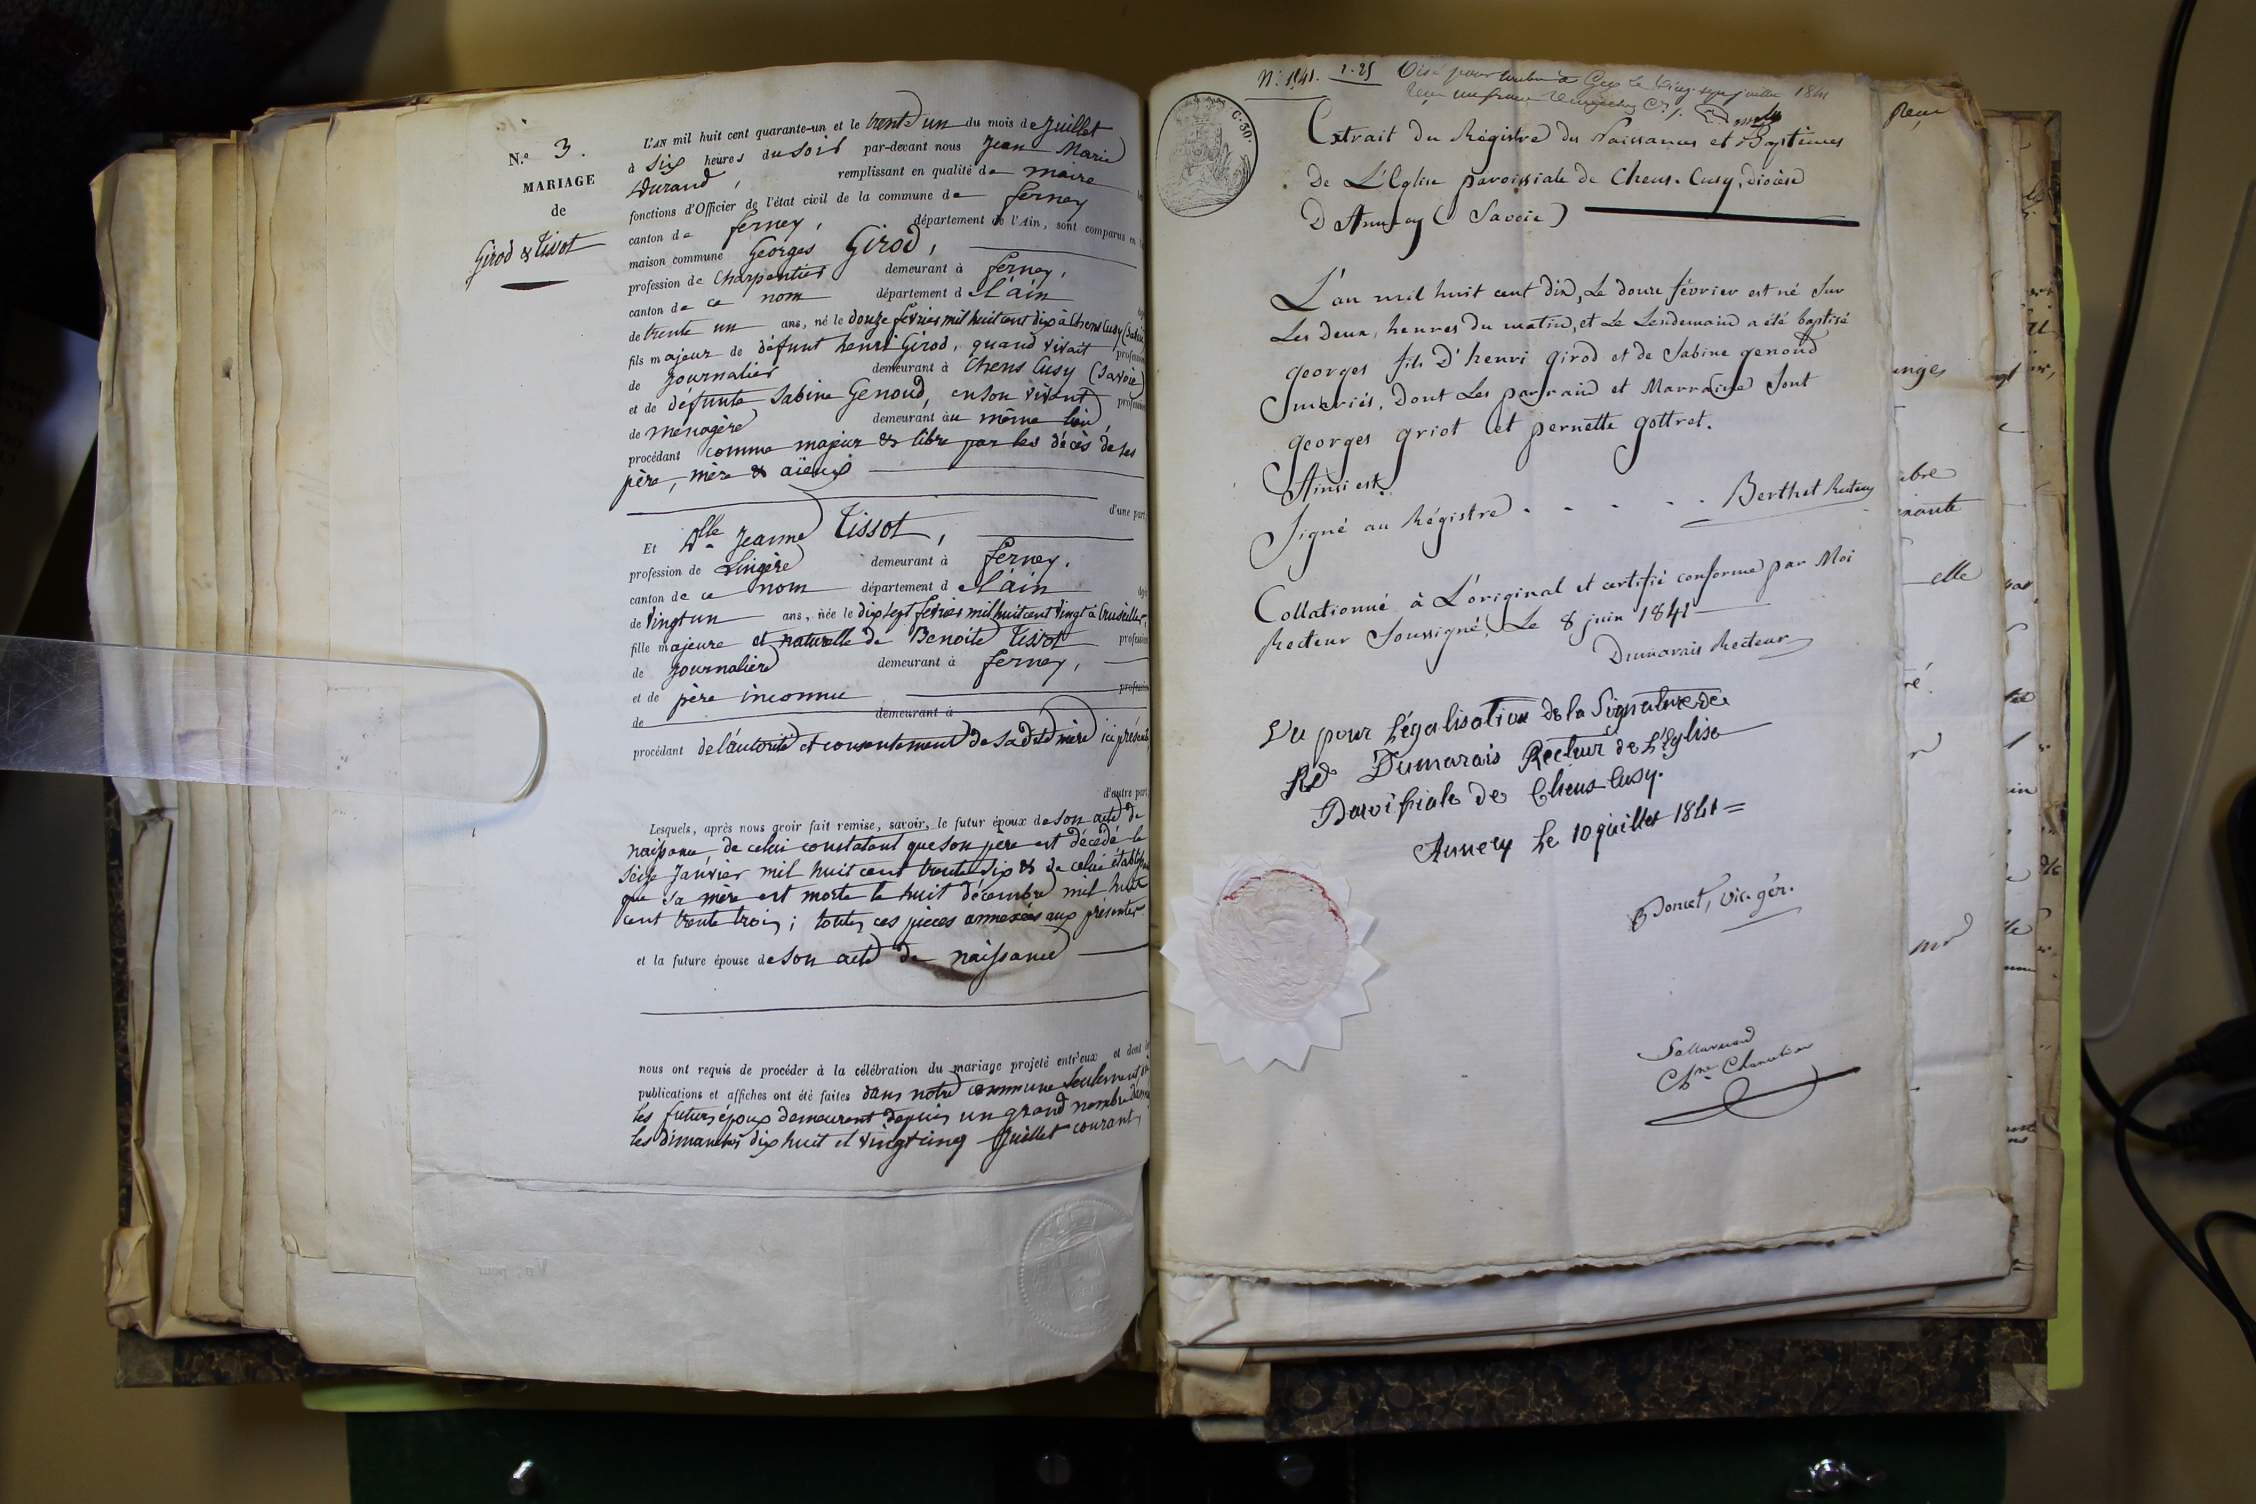 N.º 3.
MARIAGE
de
Girod & Tissot
L'AN mil huit cent quarante-un et le trente un du mois de Juillet
à six heures du soir par-devant nous Jean Marie
Durand, remplissant en qualité de maire
fonctions d'Officier de l'état civil de la commune de ferney
canton de ferney, département de l'Ain, sont comparus en la
maison commune Georges Girod,
profession de Charpentier demeurant à ferney,
canton de ce nom département d l'ain
de trente un ans, né le douze février mil huit cent dix à Chens Cusy (Savoie
fils majeur de défunt henri Girod, quand vivait profession
de journalier demeurant à Chens Cusy (Savoie)
et de defunte Sabine Genoud, en son vivant profession
de menagère demeurant au même lieu
procédant comme majeur & libre par les décès de ses
père, mère & aïeux
d'une part
Et Dlle Jeanne Tissot,
profession de Lingère demeurant à ferney.
canton de ce nom département d l'ain
de vingt un ans, née le dix sept février mil huit cent vingt à Cruseilles,
fille majeure et naturelle de Benoite Tissot profession
de journalière demeurant à ferney,
et de père inconnu profession
de demeurant à
procédant de l'autorité et consentement de sa dite mère ici présente
d'autre part
Lesquels, après nous avoir fait remise, savoir, le futur époux de son acte de
naissance, de celui constatant que son père est décédé le
seize Janvier mil huit cent trente six & de celui établissant
que sa mère est morte le huit décembre mil huit
cent trente trois; toutes ces pièces annexées aux présentes.
et la future épouse de son acte de naissance
nous ont requis de procéder à la célébration du mariage projeté entr'eux et dont les
publications et affiches ont été faites dans notre commune seulement où
les futurs époux demeurent depuis un grand nombre d'années
les dimanches dix huit et vingt cinq Juillet courant,
N.º 1941. 2.25 Visé pour timbre à Gex le vingt sept juillet 1841
Extrait du Régistre des Naissances et Baptêmes
De L'Eglise paroissiale de Chens-Cusy, diocèse
D'Annecy (Savoie)
C. 30.
L'an mil huit cent dix, Le douze février est né sur
Les deux heures du matin, et Le Lendemain a été baptisé
georges fils D'henri girod et de Sabine genoud
mariés, Dont Les parrain et Marraine sont
georges griot et pernette gottret.
Ainsi est.
Signé au Régistre . . . . . Berthet Recteur
Collationné à L'original et certifié conforme par Moi
Recteur Soussigné, Le 8 juin 1841
Dumarais Recteur
Vu pour Légalisation de la Signature de
Rd Dumarais Recteur de L'Eglise
Paroissiale de Chens-Cusy.
Annecy le 10 juillet 1841 =
Poncet, vic. gér.
Sallavuard
Chne Chancelier